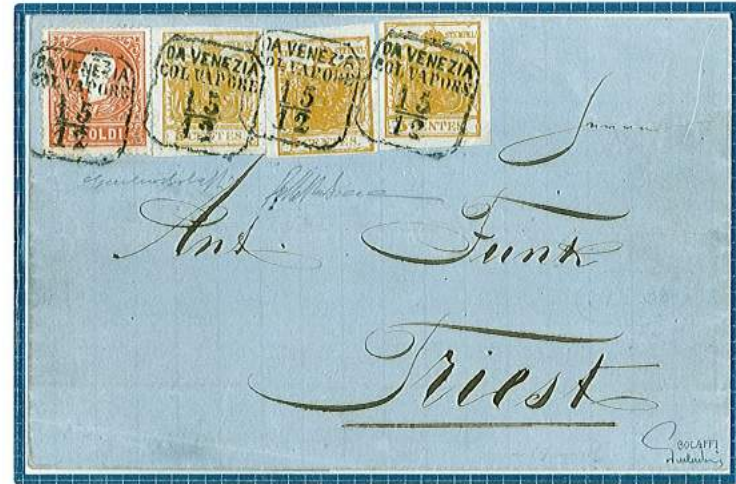 DA VENEZIA
COL VAPORE
15
12
SOLDI
DA VENEZIA
COL VAPORE
15
12
CENTES.
DA VENEZIA
COL VAPORE
15
12
CENTES.
DA VENEZIA
COL VAPORE
15
12
CENTES.
Ant. Funk
Triest
BOLAFFI